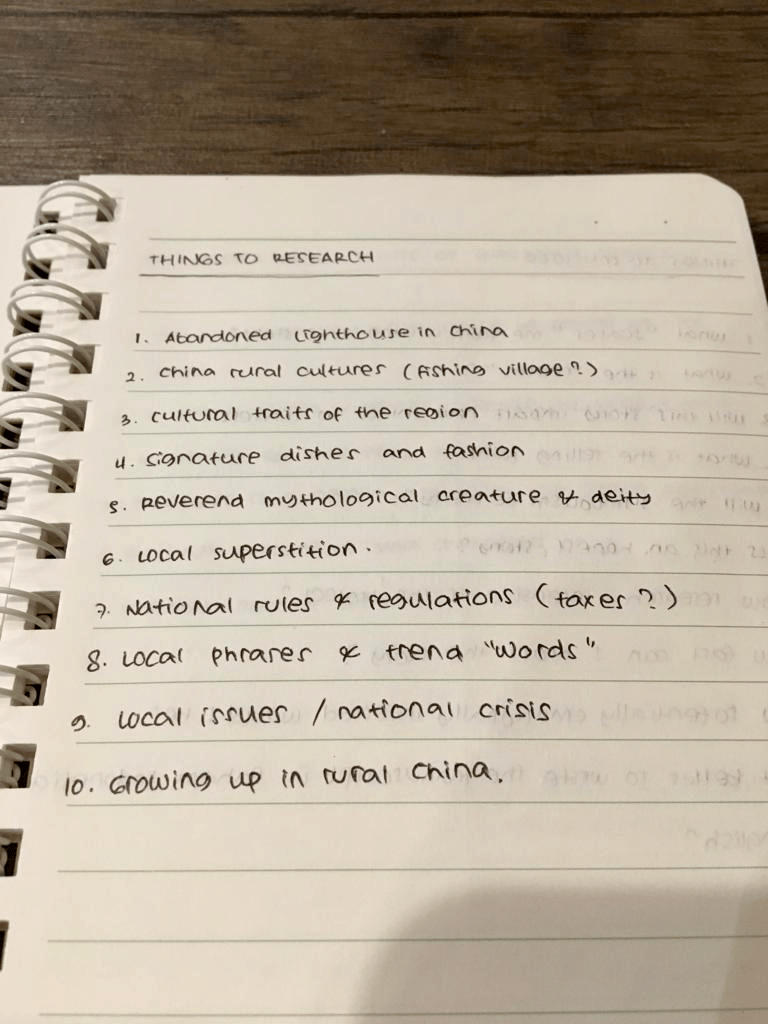 THINGS TO RESEARCH
1. Abandoned Lighthouse in China
2. China rural cultures (fishing village?)
3. cultural traits of the region
4. Signature dishes and fashion
5. Reverend mythological creature & deity
6. Local superstition.
7. National rules & regulations (taxes?)
8. Local phrases & trend "words"
9. Local issues / national crisis
10. Growing up in rural China.